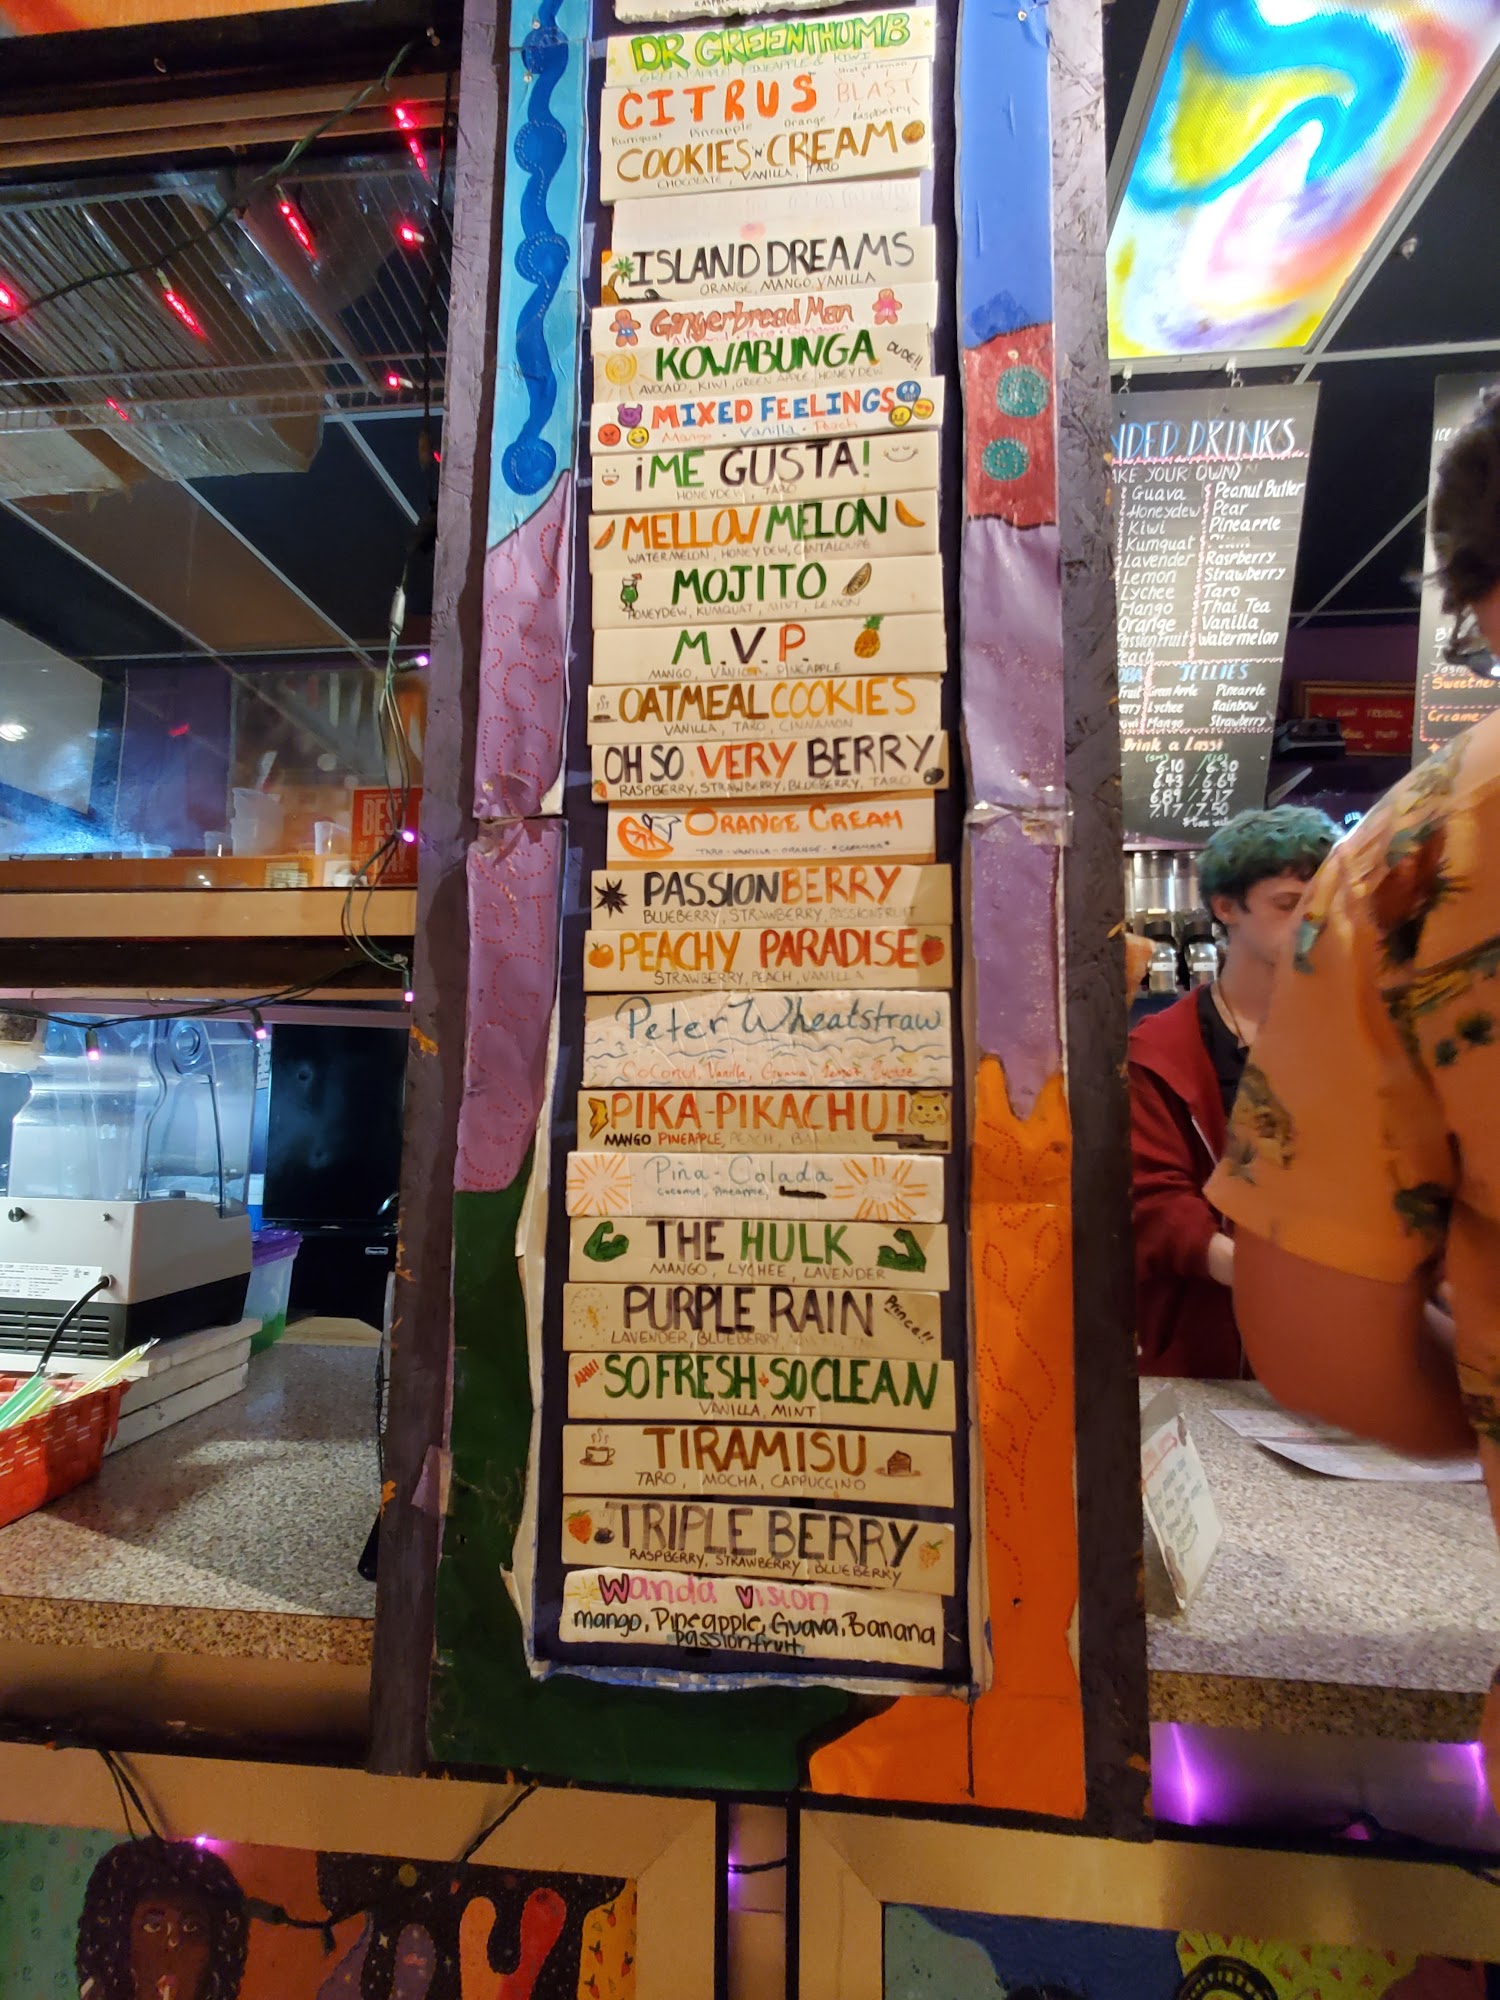 DR GREENTHUMB
GREEN APPLE, PINEAPPLE & KIWI
CITRUS BLAST
Shot of lemon
Kumquat Pineapple Orange Raspberry
COOKIES 'N' CREAM
CHOCOLATE, VANILLA, TARO
ISLAND DREAMS
ORANGE, MANGO, VANILLA
Gingerbread Man
Taro Cinnamon
KOWABUNGA DUDE!!
AVOCADO, KIWI, GREEN APPLE, HONEYDEW
MIXED FEELINGS
Mango • Vanilla • Peach
¡ME GUSTA!
HONEYDEW, TARO
MELLOW MELON
WATERMELON, HONEYDEW, CANTALOUPE
MOJITO
HONEYDEW, KUMQUAT, MINT, LEMON
M.V.P.
MANGO, VANILLA, PINEAPPLE
OATMEAL COOKIES
VANILLA, TARO, CINNAMON
OH SO VERY BERRY
RASPBERRY, STRAWBERRY, BLUEBERRY, TARO
ORANGE CREAM
TARO - VANILLA - ORANGE -
PASSIONBERRY
BLUEBERRY, STRAWBERRY, PASSIONFRUIT
PEACHY PARADISE
STRAWBERRY, PEACH, VANILLA
Peter Wheatstraw
Coconut, Vanilla, Guava,
PIKA-PIKACHU!
MANGO PINEAPPLE, PEACH,
Piña-Colada
Coconut, Pineapple,
THE HULK
MANGO, LYCHEE, LAVENDER
PURPLE RAIN Prince!!
LAVENDER, BLUEBERRY
AHH! SO FRESH SO CLEAN
VANILLA, MINT
TIRAMISU
TARO, MOCHA, CAPPUCCINO
TRIPLE BERRY
RASPBERRY, STRAWBERRY, BLUEBERRY
Wanda Vision
mango, Pineapple, Guava, Banana
Passionfruit
NDED DRINKS
AKE YOUR OWN)
Guava Peanut Butter
Honeydew Pear
Kiwi Pineapple
Kumquat
Lavender Raspberry
Lemon Strawberry
Lychee Taro
Mango Thai Tea
Orange Vanilla
Passionfruit Watermelon
Peach
OBA JELLIES
Fruit Green Apple Pineapple
erry Lychee Rainbow
Kiwi Mango Strawberry
Drink a Lassi
6.10 / 6.30
6.43 / 6.64
6.89 / 7.17
7.17 / 7.50
Sweetner
Creame
BEST